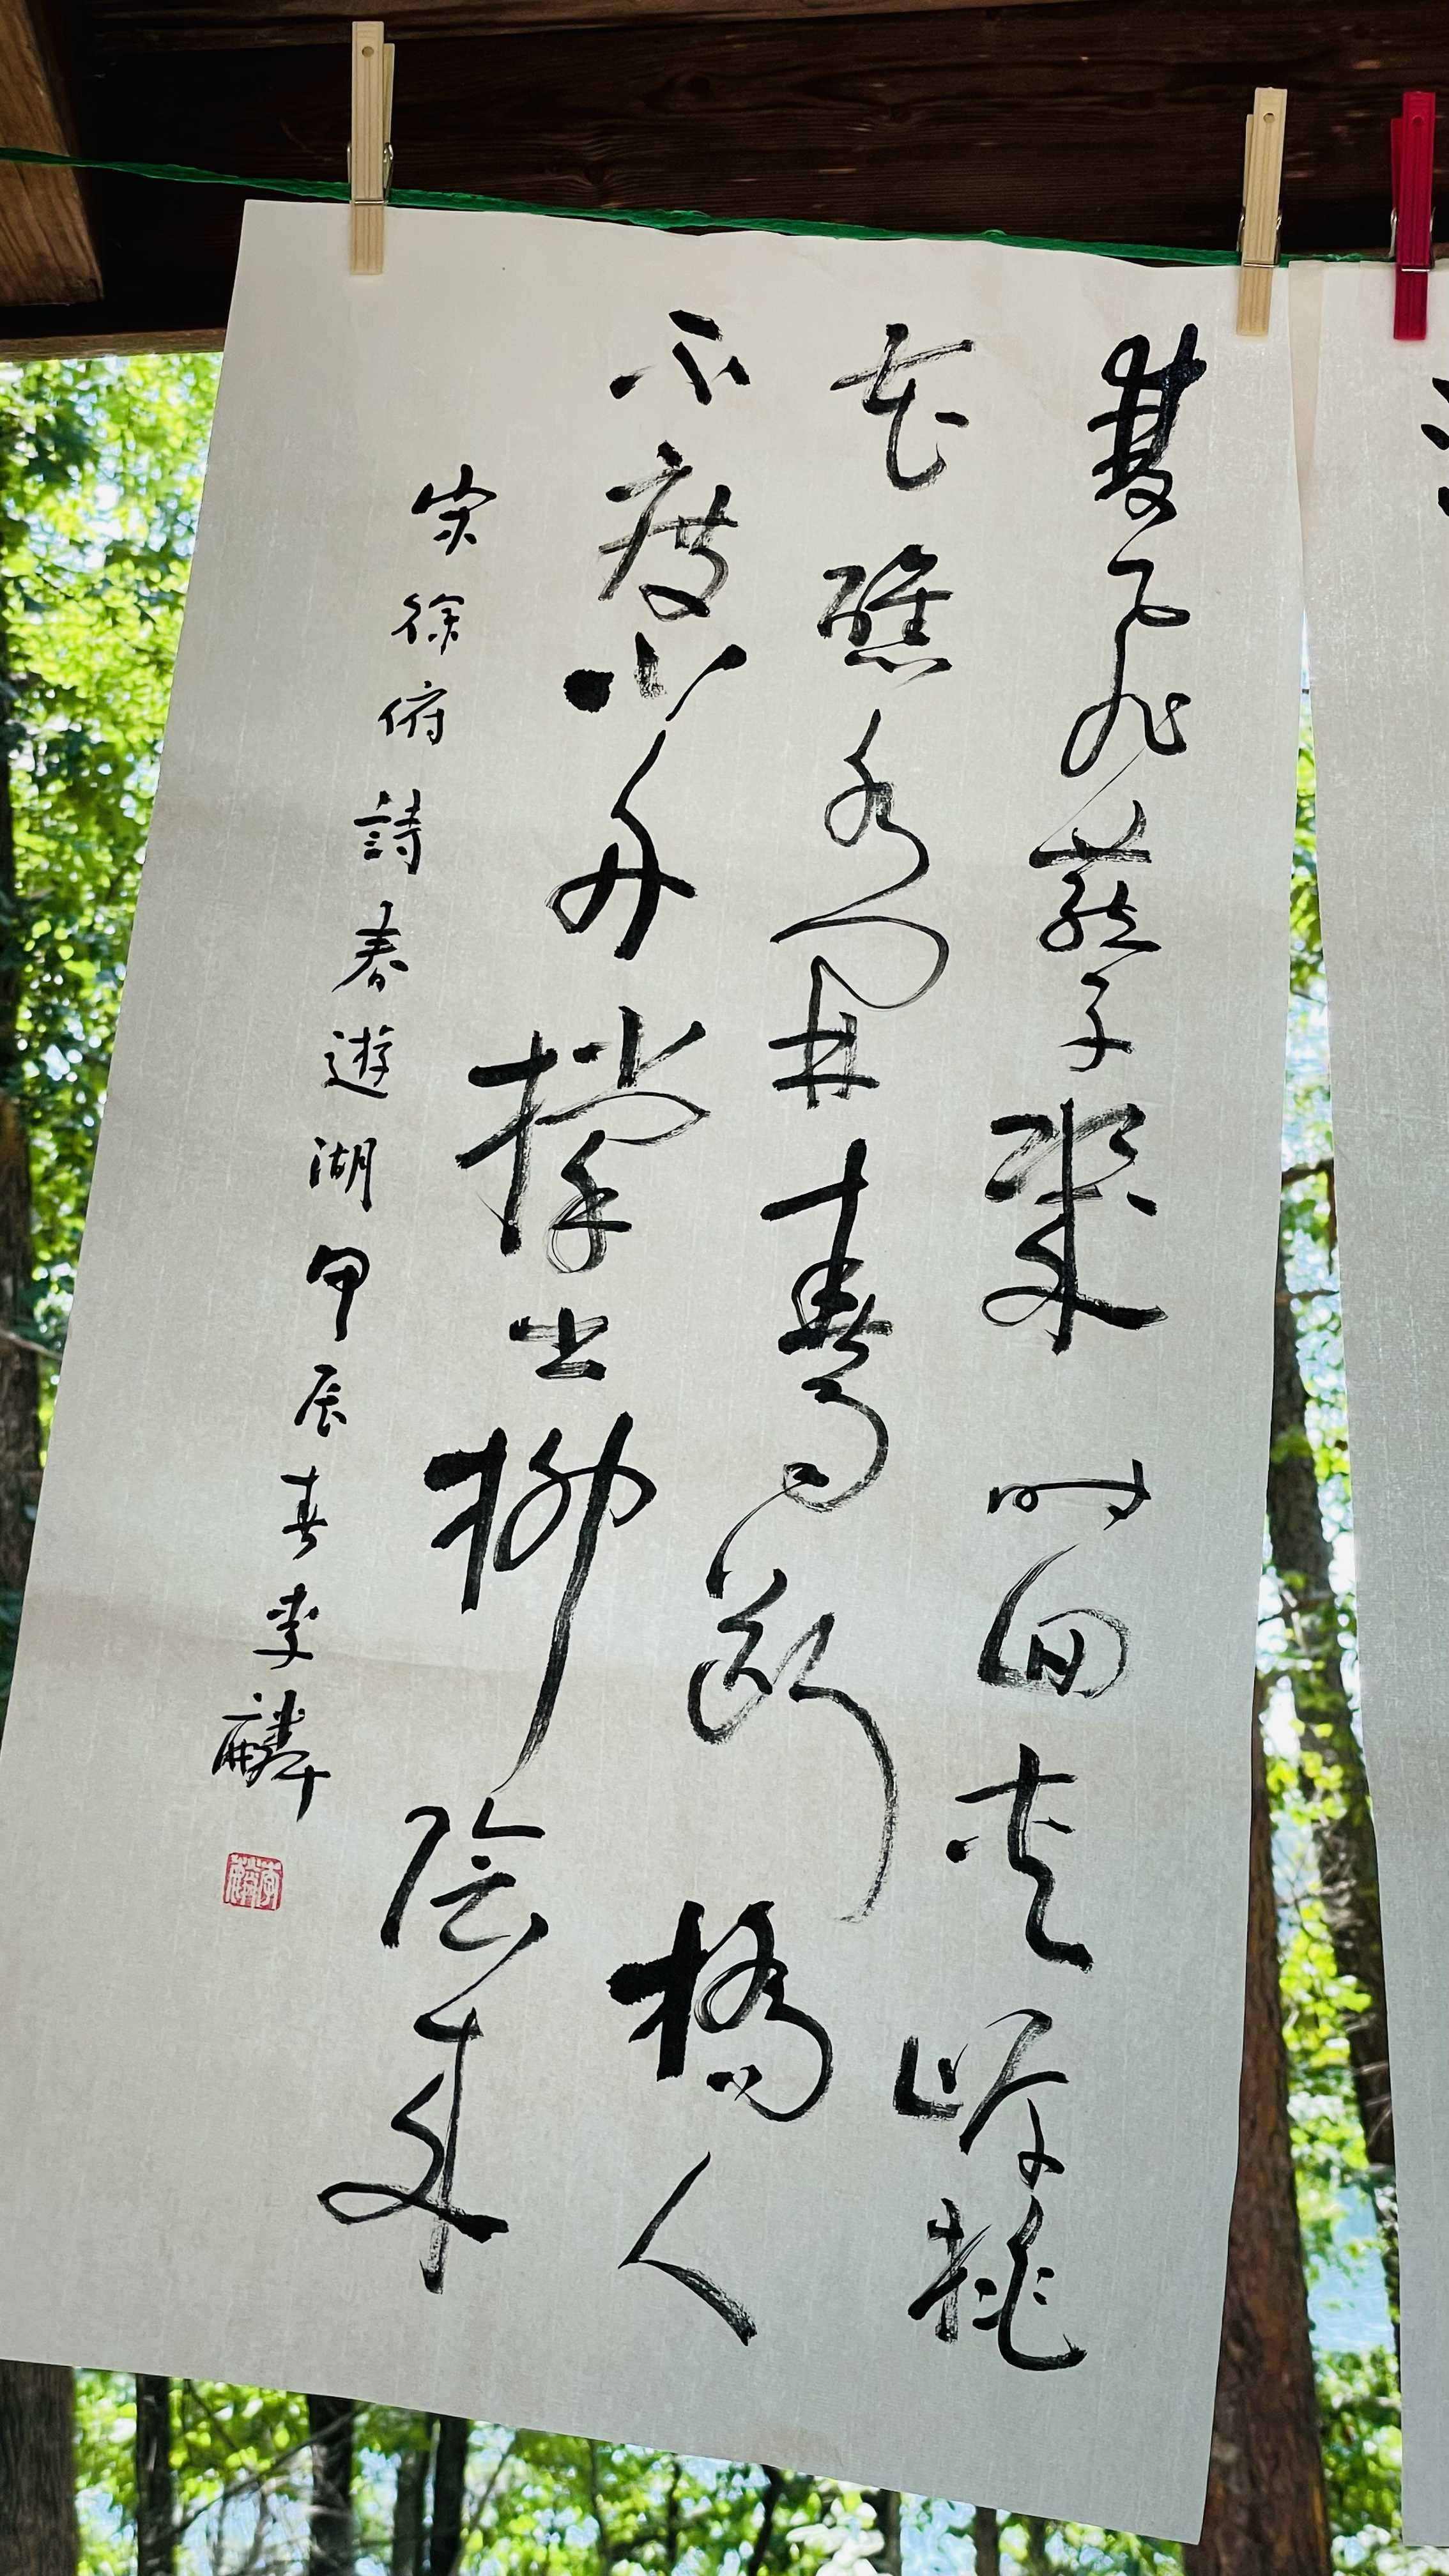 雙飛燕子幾時回夾岸桃
花蘸水開春雨断橋人
不度小舟撑出柳陰来
宋徐俯詩春遊湖甲辰春李麟
李麟